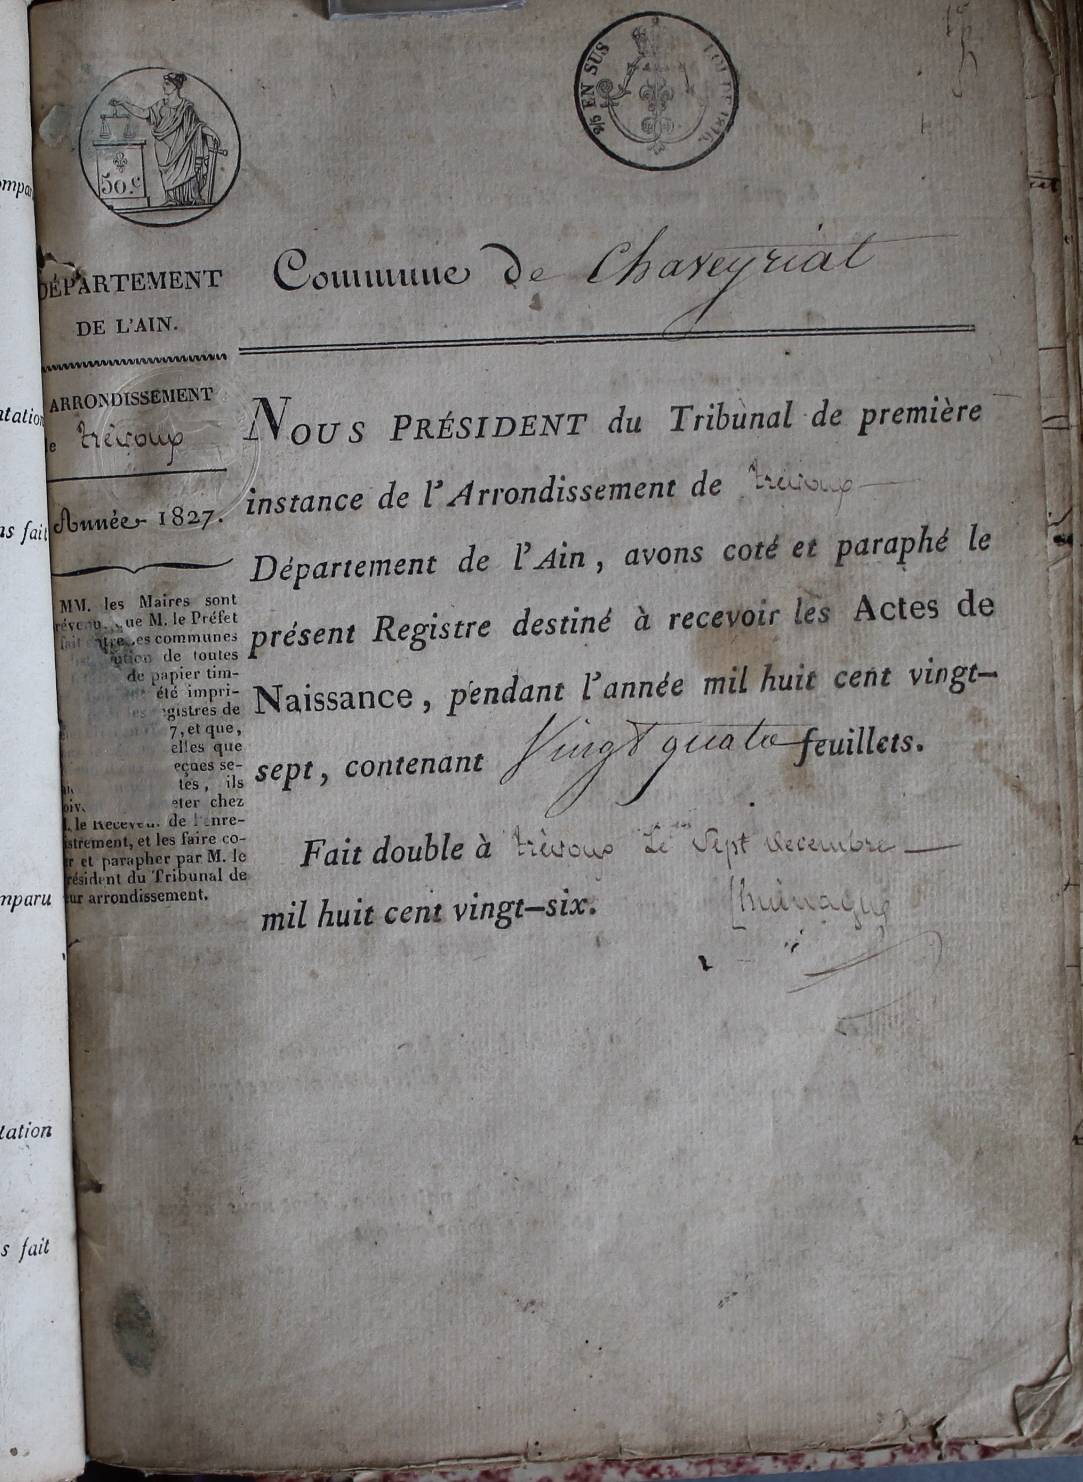 50.c
2/5 EN SUS
LOI DE 1816.
DÉPARTEMENT
DE L'AIN.
Commune De Chaveyriat
ARRONDISSEMENT
de trévoux
Année 1827.
MM. les Maires sont
que M. le Préfet
fait entre les communes
de toutes
de papier tim-
été impri-
registres de
7, et que,
elles que
reçues se-
tés, ils
eter chez
M. le Receveur de l'enre-
gistrement, et les faire co-
ter et parapher par M. le
Président du Tribunal de
leur arrondissement.
NOUS PRÉSIDENT du Tribunal de première
instance de l'Arrondissement de trévoux
Département de l'Ain, avons coté et paraphé le
présent Registre destiné à recevoir les Actes de
Naissance, pendant l'année mil huit cent vingt-
sept, contenant Vingt quatre feuillets.
Fait double à trévoux Le Sept decembre
mil huit cent vingt-six.
mparu
tation
s fait